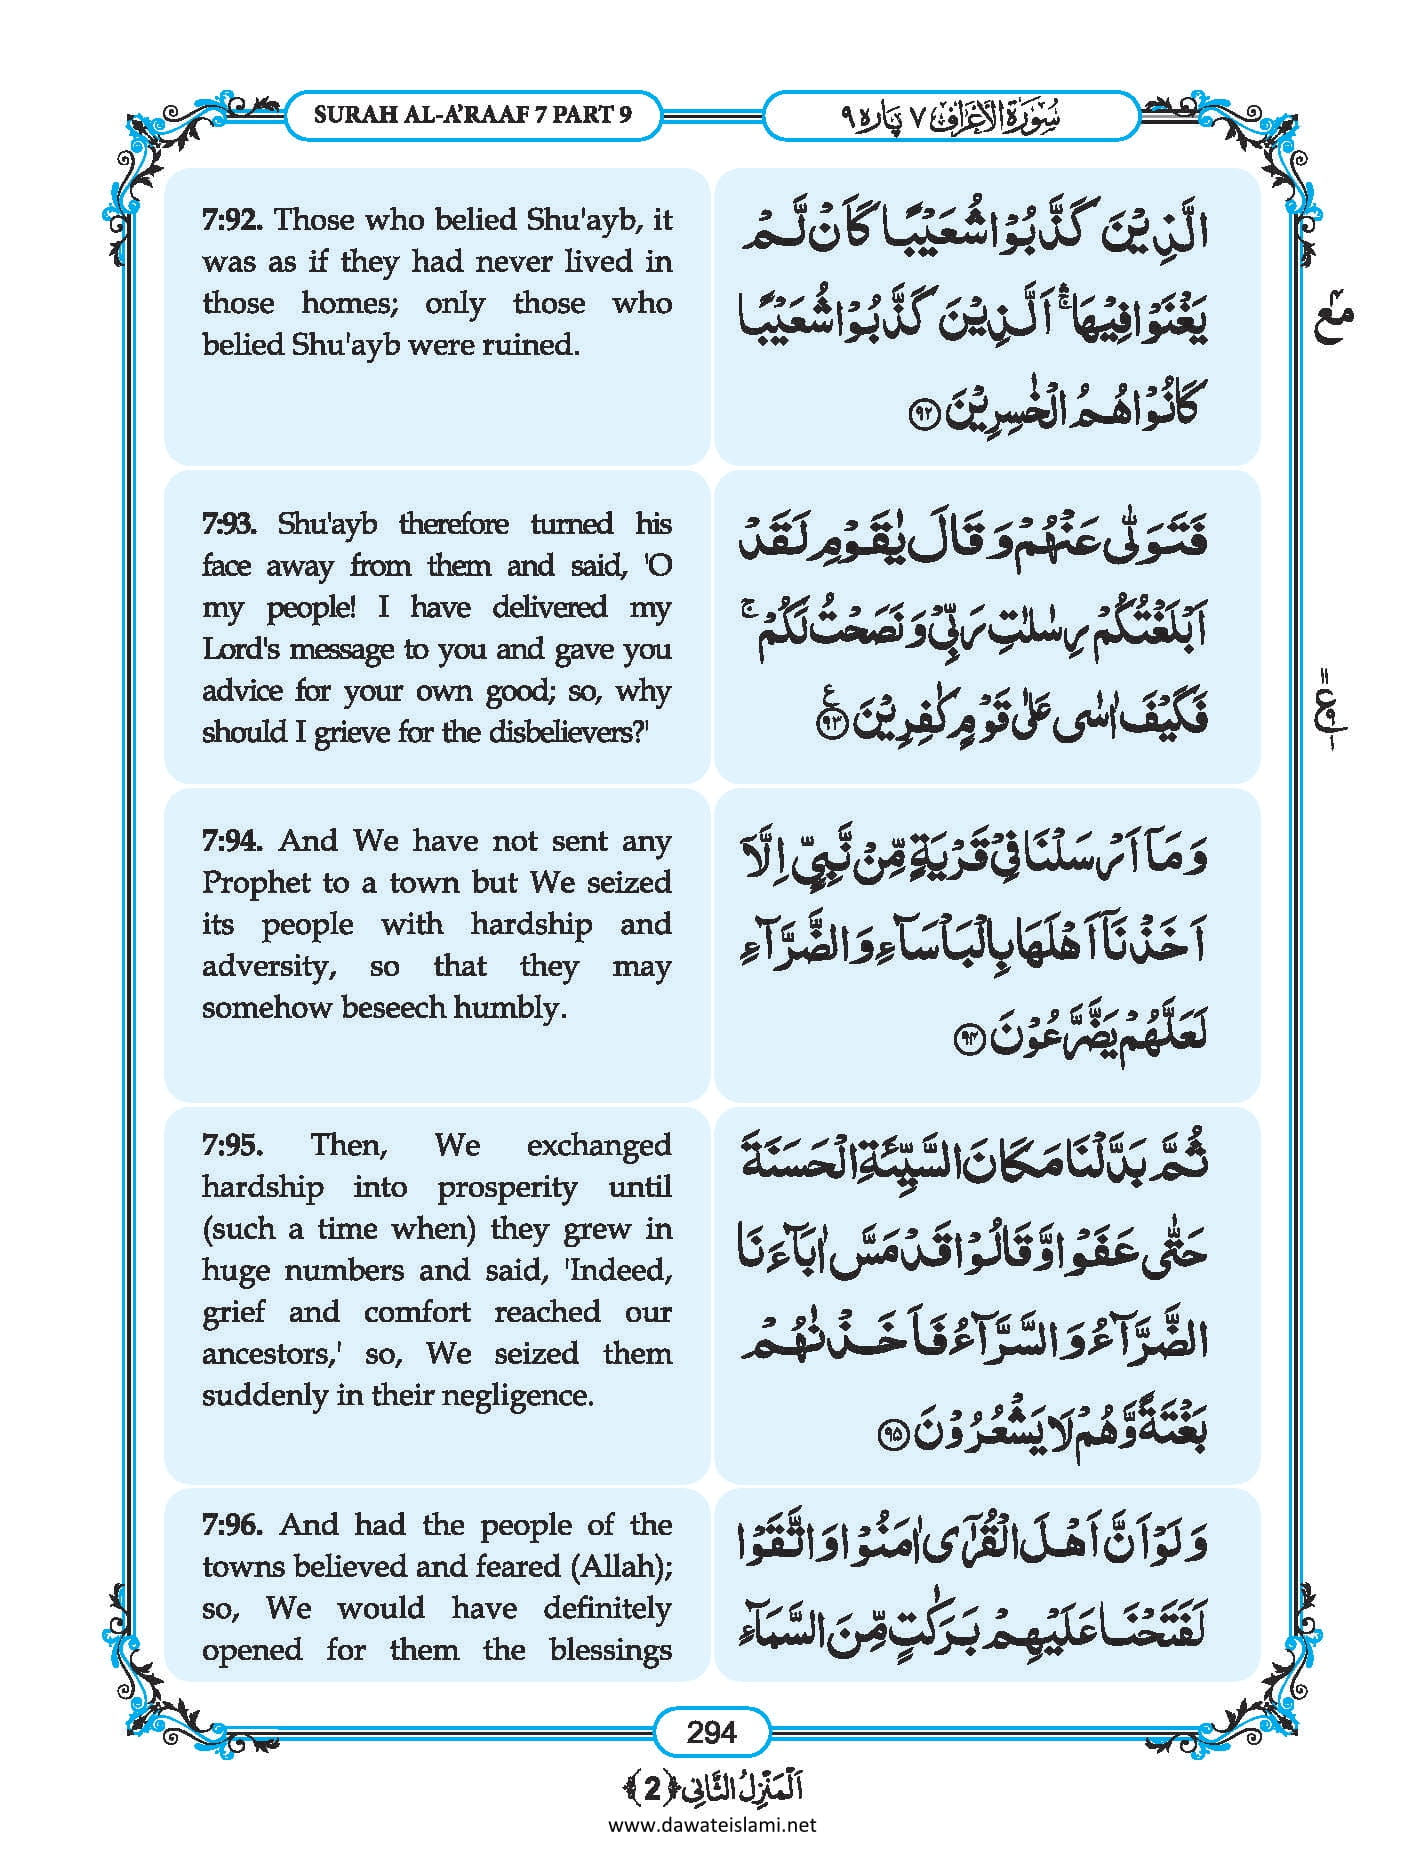 SURAH AL-A’RAAF 7 PART 9
سُوْرَةُ الْاَعْرَاف ٧ پارہ ٩
7:92. Those who belied Shu'ayb, it
was as if they had never lived in
those homes; only those who
belied Shu'ayb were ruined.
الَّذِیْنَ كَذَّبُوْا شُعَیْبًا كَاَنْ لَّمْ
یَغْنَوْا فِیْهَا ۚۛ اَلَّذِیْنَ كَذَّبُوْا شُعَیْبًا
كَانُوْا هُمُ الْخٰسِرِیْنَ ﴿۹۲﴾
مع
7:93. Shu'ayb therefore turned his
face away from them and said, 'O
my people! I have delivered my
Lord's message to you and gave you
advice for your own good; so, why
should I grieve for the disbelievers?'
فَتَوَلّٰى عَنْهُمْ وَ قَالَ یٰقَوْمِ لَقَدْ
اَبْلَغْتُكُمْ رِسٰلٰتِ رَبِّیْ وَ نَصَحْتُ لَكُمْ ۚ
فَكَیْفَ اٰسٰى عَلٰى قَوْمٍ كٰفِرِیْنَ ﴿۹۳﴾
ع
7:94. And We have not sent any
Prophet to a town but We seized
its people with hardship and
adversity, so that they may
somehow beseech humbly.
وَ مَاۤ اَرْسَلْنَا فِیْ قَرْیَةٍ مِّنْ نَّبِیٍّ اِلَّاۤ
اَخَذْنَاۤ اَهْلَهَا بِالْبَاْسَآءِ وَ الضَّرَّآءِ
لَعَلَّهُمْ یَضَّرَّعُوْنَ ﴿۹۴﴾
7:95. Then, We exchanged
hardship into prosperity until
(such a time when) they grew in
huge numbers and said, 'Indeed,
grief and comfort reached our
ancestors,' so, We seized them
suddenly in their negligence.
ثُمَّ بَدَّلْنَا مَكَانَ السَّیِّئَةِ الْحَسَنَةَ
حَتّٰى عَفَوْا وَّ قَالُوْا قَدْ مَسَّ اٰبَآءَنَا
الضَّرَّآءُ وَ السَّرَّآءُ فَاَخَذْنٰهُمْ
بَغْتَةً وَّ هُمْ لَا یَشْعُرُوْنَ ﴿۹۵﴾
7:96. And had the people of the
towns believed and feared (Allah);
so, We would have definitely
opened for them the blessings
وَ لَوْ اَنَّ اَهْلَ الْقُرٰۤى اٰمَنُوْا وَ اتَّقَوْا
لَفَتَحْنَا عَلَیْهِمْ بَرَكٰتٍ مِّنَ السَّمَآءِ
294
اَلْمَنْزِلُ الثَّانِی ﴿2﴾
www.dawateislami.net